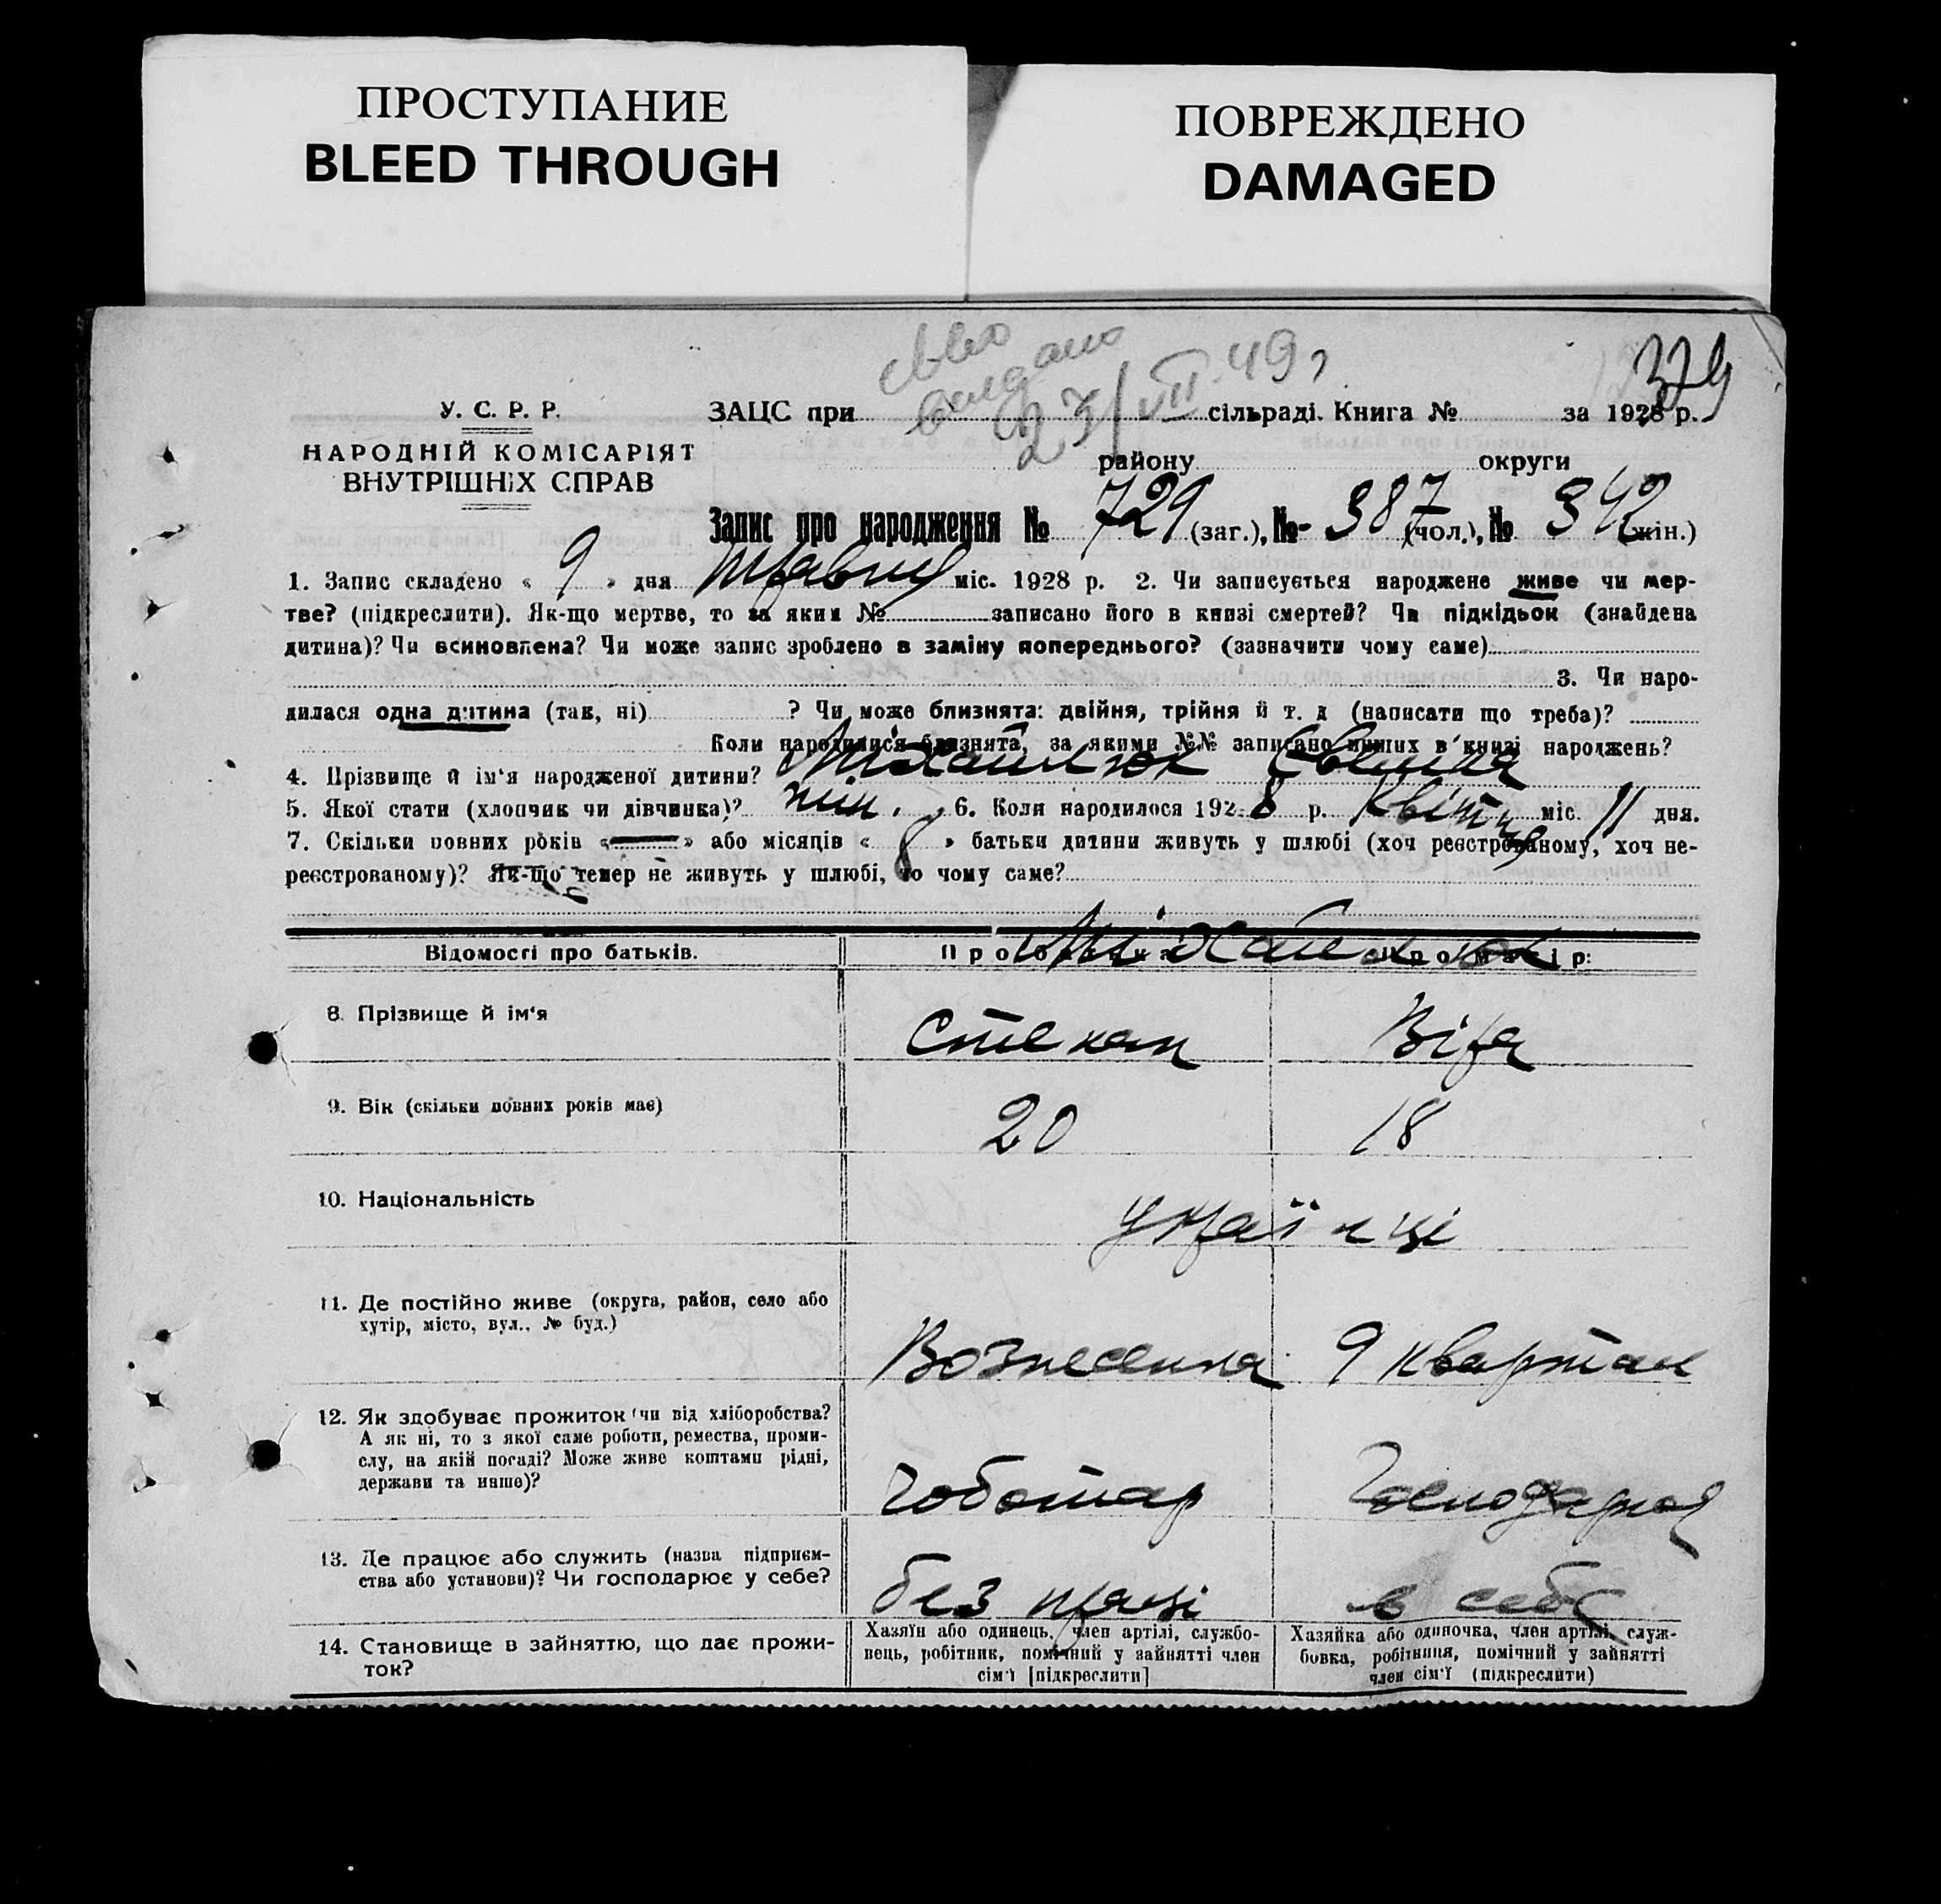 ПРОСТУПАНИЕ
BLEED THROUGH
ПОВРЕЖДЕНО
DAMAGED
видано
23/VII 49 г
379
У. С. Р. Р.
НАРОДНІЙ КОМІСАРІЯТ
ВНУТРІШНІХ СПРАВ
ЗАЦС при сільраді. Книга № за 1928 р.
району округи
Запис про народження № 729 (заг.), № 387 (чол.), № 342 (жін.)
1. Запис складено « 9 » дня травня міс. 1928 р. 2. Чи записується народжене живе чи мер-
тве? (підкреслити). Як-що мертве, то за яким № записано його в книзі смертей? Чи підкідьок (знайдена
дитина)? Чи всиновлена? Чи може запис зроблено в заміну попереднього? (зазначити чому саме)
3. Чи наро-
дилася одна дитина (так, ні) ? Чи може близнята: двійня, трійня й т. д (написати що треба)?
Коли народилися близнята, за якими №№ записано инших в книзі народжень?
4. Прізвище й ім'я народженої дитини? Міхайлюк Євгенія
5. Якої стати (хлопчик чи дівчинка)? жін. 6. Коли народилося 1928 р. Квітня міс. 11 дня.
7. Скільки повних років « — » або місяців « 8 » батьки дитини живуть у шлюбі (хоч реєстрованому, хоч не-
реєстрованому)? Як-що тепер не живуть у шлюбі, то чому саме?
Відомості про батьків. Про батька Про матір:
Міхайлюк
8. Прізвище й ім'я Степан Віра
9. Вік (скільки повних років має) 20 18
10. Національність українці
11. Де постійно живе (округа, район, село або
хутір, місто, вул., № буд.)
Вознесенка 9 квартал
12. Як здобуває прожиток (чи від хліборобства?
А як ні, то з якої саме роботи, ремества, проми-
слу, на якій посаді? Може живе коштами рідні,
держави та инше)?
Чоботар Господарка
13. Де працює або служить (назва підприєм-
ства або установи)? Чи господарює у себе?
без праці в себе
14. Становище в зайняттю, що дає прожи-
ток?
Хазяїн або одинець, член артілі, службо-
вець, робітник, помічний у зайнятті член
сім'ї [підкреслити]
Хазяйка або одиночка, член артілі, служ-
бовка, робітниця, помічний у зайнятті
член сім'ї (підкреслити)